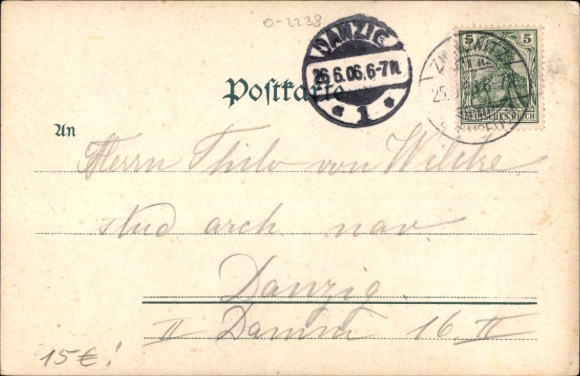 0-2238
DANZIG
26.6.06.6-7N.
* 1 *
5 5
DEUTSCHES REICH
ZINNOWITZ
25.
Postkarte
An
Herrn Thilo von Wilcke,
stud arch nav
Danzig.
II Damm 16 II
15€!